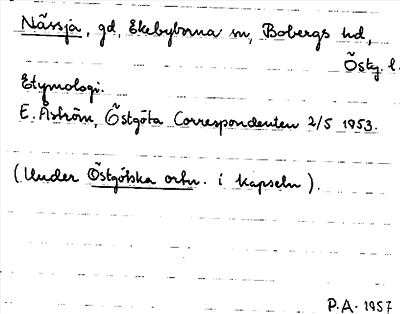 Nässja, gd, Ekebyborna sn, Bobergs hd,
Östg. l.
Etymologi.
E. Åström, Östgöta Correspondenten 2/5 1953.
(Under Östgötska ortn. i kapseln).
P.A. 1957